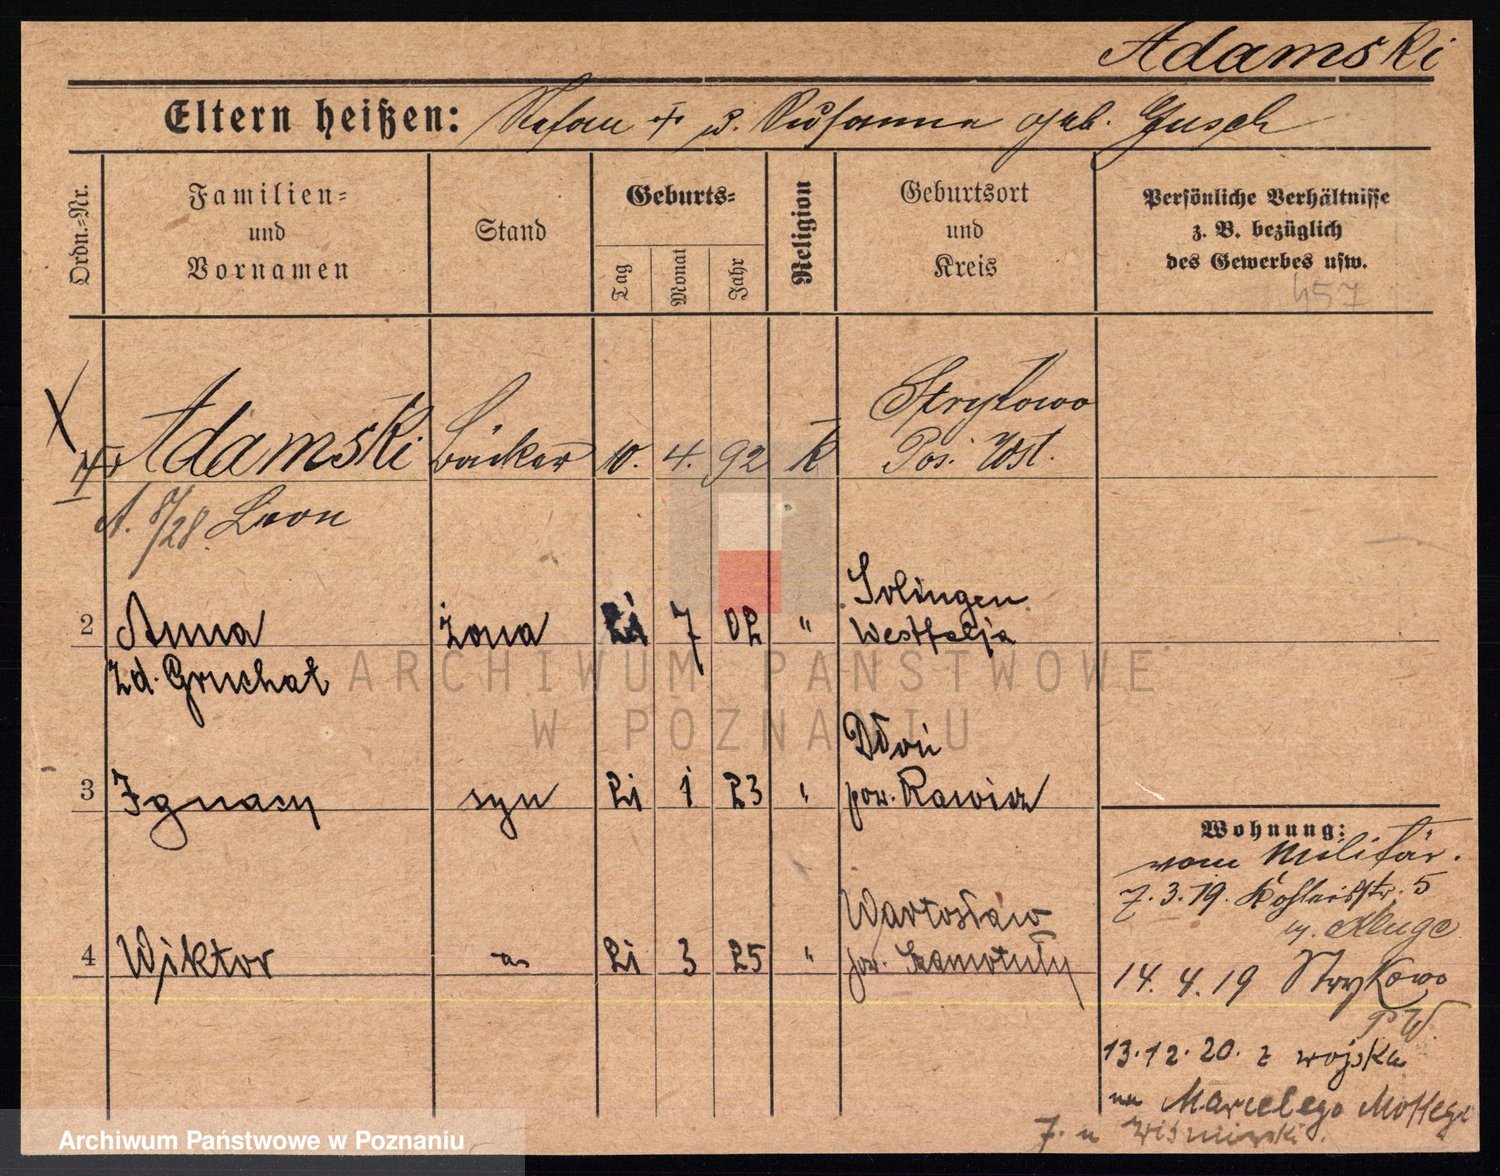 Adamski
Eltern heißen: Stefan + u. Susanna geb. Gusch
Ordn.=Nr.
Familien=
und
Vornamen
Stand
Geburts=
Tag
Monat
Jahr
Religion
Geburtsort
und
Kreis
Persönliche Verhältnisse
z. B. bezüglich
des Gewerbes usw.
457
Strykowo
Adamski Bäcker 10. 4. 92 k Pos. Wst.
A. 8/28 Leon
Solingen
2 Anna żona 21 7 02 " Westfalja
zd. Gruchat
Dłoń
3 Ignacy syn 21 1 23 " pow. Rawicz
Wartosław
4 Wiktor " 21 3 25 " pow. Szamotuły
Wohnung:
vom Militär.
7. 3. 19. 5
Kluge
14. 4. 19 Strykowo
PW.
13. 12. 20. z wojska
na Marcelego Mottego
7. u Wiśniewski.
ARCHIWUM PAŃSTWOWE
W POZNANIU
Archiwum Państwowe w Poznaniu